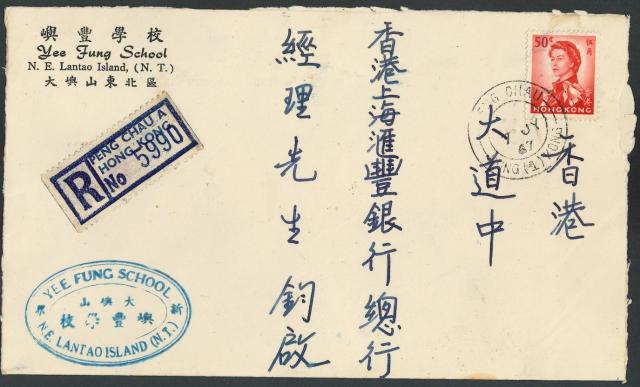 校學豐嶼
Yee Fung School
N. E. Lantao Island, (N. T.)
區北東山嶼大
50¢
伍角
HONG KONG
PENG CHAU
JY
67
香港
大道中
香港上海滙豐銀行總行
經理先生鈞啟
R
PENG CHAU.A
HONG KONG
No 5990
YEE FUNG SCHOOL
山嶼大
校學豐嶼
N.E. LANTAO ISLAND (N.T.)